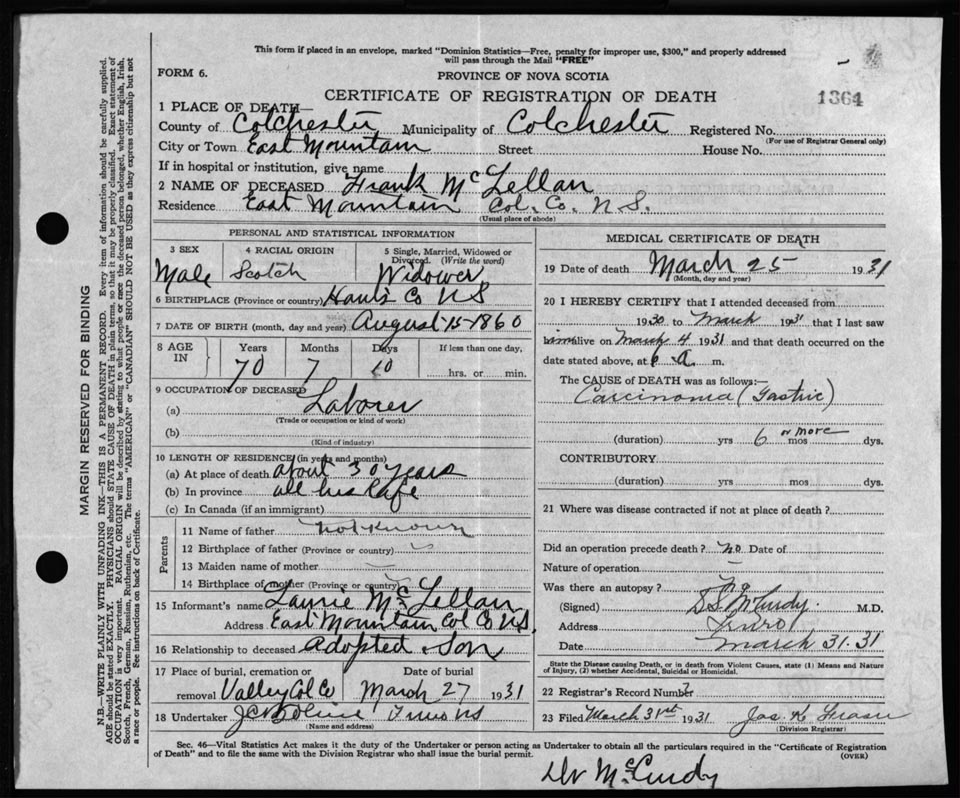 This form if placed in an envelope, marked "Dominion Statistics—Free, penalty for improper use, $300," and properly addressed
will pass through the Mail "FREE"
FORM 6.
PROVINCE OF NOVA SCOTIA
CERTIFICATE OF REGISTRATION OF DEATH
1364
1 PLACE OF DEATH—
County of Colchester Municipality of Colchester Registered No.
(For use of Registrar General only)
City or Town East Mountain Street House No.
If in hospital or institution, give name
2 NAME OF DECEASED Frank McLellan
Residence East Mountain Col. Co. N.S.
(Usual place of abode)
PERSONAL AND STATISTICAL INFORMATION
3 SEX 4 RACIAL ORIGIN 5 Single, Married, Widowed or
Divorced. (Write the word)
Male Scotch Widower
6 BIRTHPLACE (Province or country) Hants Co NS
7 DATE OF BIRTH (month, day and year) August 15-1860
8 AGE IN Years Months Days If less than one day,
70 7 10 hrs. or min.
9 OCCUPATION OF DECEASED
(a) Laborer
(Trade or occupation or kind of work)
(b)
(Kind of industry)
10 LENGTH OF RESIDENCE (in years and months)
(a) At place of death about 30 years
(b) In province all his Life
(c) In Canada (if an immigrant)
Parents
11 Name of father not known
12 Birthplace of father (Province or country)
13 Maiden name of mother
14 Birthplace of mother (Province or country)
15 Informant's name Laurie McLellan
Address East Mountain Col Co NS
16 Relationship to deceased Adopted Son
17 Place of burial, cremation or Date of burial
removal Valley Col Co March 27 1931
18 Undertaker Truro NS
(Name and address)
MEDICAL CERTIFICATE OF DEATH
19 Date of death March 25 1931
(Month, day and year)
20 I HEREBY CERTIFY that I attended deceased from
1930 to March 1931 that I last saw
him alive on March 4 1931 and that death occurred on the
date stated above, at 6 a. m.
The CAUSE of DEATH was as follows:—
Carcinoma (Gastric)
(duration) yrs 6 or more mos dys.
CONTRIBUTORY
(duration) yrs mos dys.
21 Where was disease contracted if not at place of death?
Did an operation precede death? no Date of
Nature of operation
Was there an autopsy? no
(Signed) McCurdy M.D.
Address Truro
Date March 31.31
State the Disease causing Death, or in death from Violent Causes, state (1) Means and Nature
of Injury, (2) whether Accidental, Suicidal or Homicidal.
22 Registrar's Record Number
23 Filed March 31st 1931 Jas. K Fraser
(Division Registrar)
Sec. 46—Vital Statistics Act makes it the duty of the Undertaker or person acting as Undertaker to obtain all the particulars required in the "Certificate of Registration
of Death" and to file the same with the Division Registrar who shall issue the burial permit.
(OVER)
Dr McCurdy
MARGIN RESERVED FOR BINDING
N.B.—WRITE PLAINLY WITH UNFADING INK—THIS IS A PERMANENT RECORD. Every item of information should be carefully supplied.
AGE should be stated EXACTLY. PHYSICIANS should STATE CAUSE OF DEATH in plain terms, so that it may be properly classified. Exact statement of
OCCUPATION is very important. RACIAL ORIGIN will be described by stating to what people or race the deceased person belonged, whether English, Irish,
Scotch, French, German, Russian, Ruthenian, etc. The terms "AMERICAN" or "CANADIAN" SHOULD NOT BE USED as they express citizenship but not
a race or people. See instructions on back of Certificate.